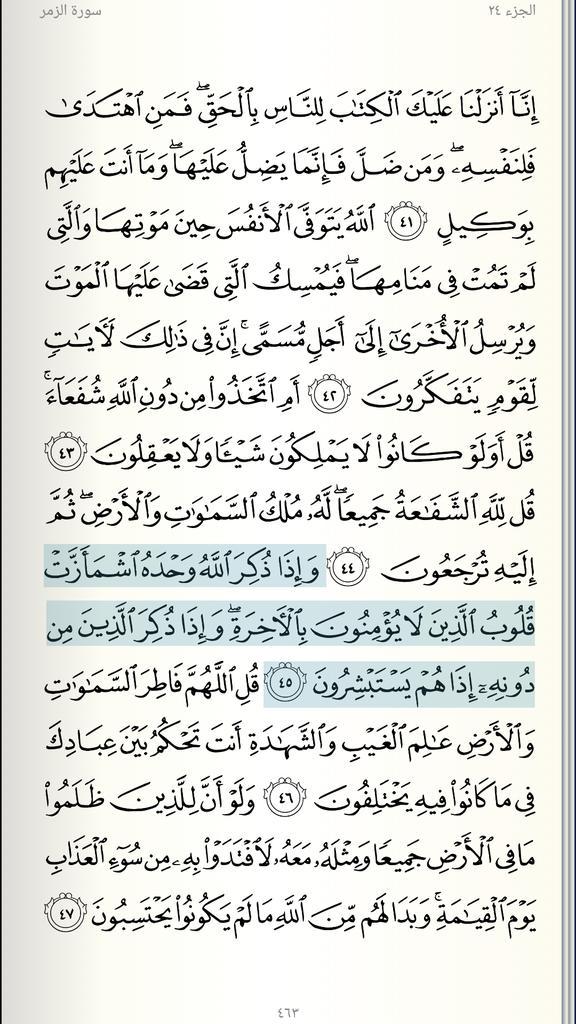 الجزء ٢٤
سورة الزمر
إِنَّآ أَنزَلْنَا عَلَيْكَ ٱلْكِتَٰبَ لِلنَّاسِ بِٱلْحَقِّۖ فَمَنِ ٱهْتَدَىٰ
فَلِنَفْسِهِۦۖ وَمَن ضَلَّ فَإِنَّمَا يَضِلُّ عَلَيْهَاۖ وَمَآ أَنتَ عَلَيْهِم
بِوَكِيلٍ ٤١ ٱللَّهُ يَتَوَفَّى ٱلْأَنفُسَ حِينَ مَوْتِهَا وَٱلَّتِى
لَمْ تَمُتْ فِى مَنَامِهَاۖ فَيُمْسِكُ ٱلَّتِى قَضَىٰ عَلَيْهَا ٱلْمَوْتَ
وَيُرْسِلُ ٱلْأُخْرَىٰٓ إِلَىٰٓ أَجَلٍ مُّسَمًّىۚ إِنَّ فِى ذَٰلِكَ لَءَايَٰتٍ
لِّقَوْمٍ يَتَفَكَّرُونَ ٤٢ أَمِ ٱتَّخَذُوا۟ مِن دُونِ ٱللَّهِ شُفَعَآءَۚ
قُلْ أَوَلَوْ كَانُوا۟ لَا يَمْلِكُونَ شَيْـًٔا وَلَا يَعْقِلُونَ ٤٣
قُل لِّلَّهِ ٱلشَّفَٰعَةُ جَمِيعًاۖ لَّهُۥ مُلْكُ ٱلسَّمَٰوَٰتِ وَٱلْأَرْضِۖ ثُمَّ
إِلَيْهِ تُرْجَعُونَ ٤٤ وَإِذَا ذُكِرَ ٱللَّهُ وَحْدَهُ ٱشْمَأَزَّتْ
قُلُوبُ ٱلَّذِينَ لَا يُؤْمِنُونَ بِٱلْءَاخِرَةِۖ وَإِذَا ذُكِرَ ٱلَّذِينَ مِن
دُونِهِۦٓ إِذَا هُمْ يَسْتَبْشِرُونَ ٤٥ قُلِ ٱللَّهُمَّ فَاطِرَ ٱلسَّمَٰوَٰتِ
وَٱلْأَرْضِ عَٰلِمَ ٱلْغَيْبِ وَٱلشَّهَٰدَةِ أَنتَ تَحْكُمُ بَيْنَ عِبَادِكَ
فِى مَا كَانُوا۟ فِيهِ يَخْتَلِفُونَ ٤٦ وَلَوْ أَنَّ لِلَّذِينَ ظَلَمُوا۟
مَا فِى ٱلْأَرْضِ جَمِيعًا وَمِثْلَهُۥ مَعَهُۥ لَٱفْتَدَوْا۟ بِهِۦ مِن سُوٓءِ ٱلْعَذَابِ
يَوْمَ ٱلْقِيَٰمَةِۚ وَبَدَا لَهُم مِّنَ ٱللَّهِ مَا لَمْ يَكُونُوا۟ يَحْتَسِبُونَ ٤٧
٤٦٣